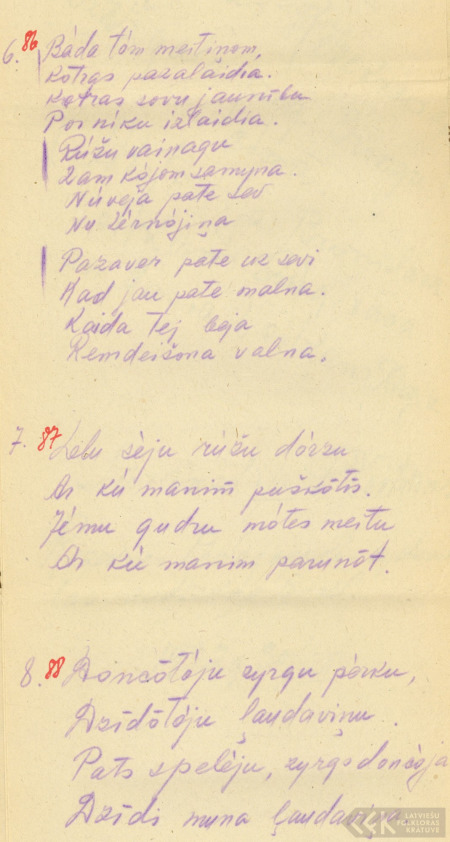 6. 86 Bāda tóm meitiņom,
Kotras pazalaidia.
Kotras sovu jaunību
Por niku izlaidia.
Rúžu vainagu
Zam kójom samyna.
Núveja pate sev
Nu žērnójiņa
Pazaver pate uz sevi
Kad jau pate malna.
Kaida tej beja
Remdeišona valna.
7. 87 Lobu sēju rúžu dórzu
Ar kú manim puškótis.
Jému gudru mótes meitu
Ar kú manim parunót.
8. 88 Doncótóju zyrgu pórku,
Dzīdótóju ļaudaviņu.
Pats spelēju, zyrgs doncója
Dzīdi muna ļaudaviņa.
LATVIEŠU
FOLKLORAS
KRĀTUVE